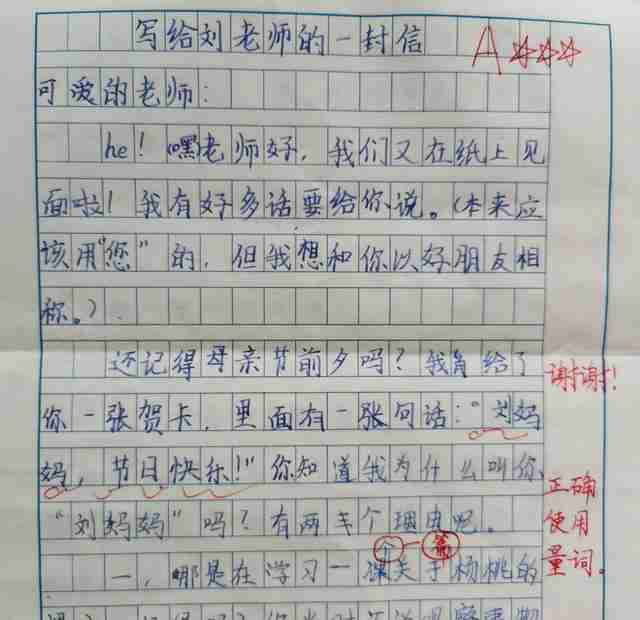 写给刘老师的一封信
A☆☆☆
可爱的老师：
he！嘿老师好，我们又在纸上见
面啦！我有好多话要给你说。（本来应
该用“您”的，但我想和你以好朋友相
称。）
还记得母亲节前夕吗？我给了
谢谢！
你一张贺卡，里面有一张句话：“刘妈
妈，节日快乐！”你知道我为什么叫你
“刘妈妈”吗？有两个理由呢。
正确
使用
量词。
个 篇
一，那是在学习一课关于杨桃的